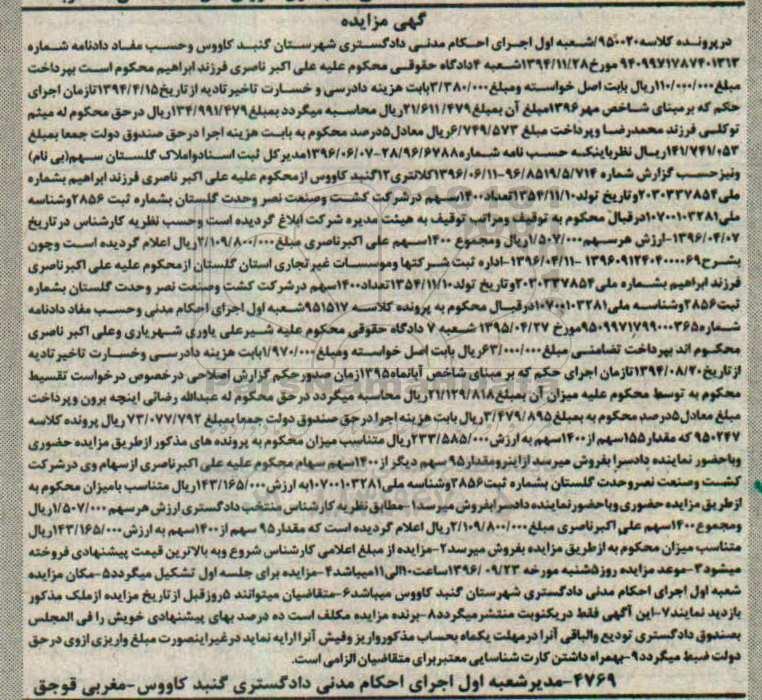 گهی مزایده
درپرونده کلاسه۹۵۰۰۲۰/شعبه اول اجرای احکام مدنی دادگستری شهرستان گنبد کاووس وحسب مفاد دادنامه شماره
۹۴۰۹۹۷۱۷۸۷۴۰۱۳۱۲ مورخ۱۳۹۴/۱۱/۲۸شعبه ۴دادگاه حقوقی محکوم علیه علی اکبر ناصری فرزند ابراهیم محکوم است بپرداخت
مبلغ۱۱۰/۰۰۰/۰۰۰ریال بابت اصل خواسته ومبلغ۳/۳۸۰/۰۰۰بابت هزینه دادرسی و خسارت تاخیر تادیه از تاریخ۱۳۹۴/۴/۱۵تازمان اجرای
حکم که برمبنای شاخص مهر۱۳۹۶مبلغ آن بمبلغ۲۱/۶۱۱/۴۷۹ریال محاسبه میگردد بمبلغ۱۳۴/۹۹۱/۴۷۹ریال درحق محکوم له میثم
توکلی فرزند محمدرضا وپرداخت مبلغ ۶/۷۴۹/۵۷۳ریال معادل۵درصد محکوم به بابت هزینه اجرا درحق صندوق دولت جمعا بمبلغ
۱۴۱/۷۴۱/۰۵۳ریال نظرباینکه حسب نامه شماره۲۸/۹۶/۶۷۸۸-۱۳۹۶/۰۶/۰۷مدیرکل ثبت اسنادواملاک گلستان سهم(بی نام)
ونیزحسب گزارش شماره ۹۶/۸۵۱۹/۵/۷۱۴-۱۳۹۶/۰۶/۱۱کلانتری۱۲گنبد کاووس ازمحکوم علیه علی اکبر ناصری فرزند ابراهیم بشماره
ملی۲۰۳۰۳۳۷۸۵۴وتاریخ تولد۱۳۵۴/۱۱/۱۰تعداد۱۴۰۰سهم درشرکت کشت وصنعت نصر وحدت گلستان بشماره ثبت ۲۸۵۶وشناسه
ملی۱۰۷۰۰۱۰۳۲۸۱درقبال محکوم به توقیف ومراتب توقیف به هیئت مدیره شرکت ابلاغ گردیده است وحسب نظریه کارشناس درتاریخ
۱۳۹۶/۰۴/۰۷-ارزش هرسهم۱/۵۰۷/۰۰۰ریال ومجموع ۱۴۰۰سهم علی اکبرناصری مبلغ۲/۱۰۹/۸۰۰/۰۰۰ریال اعلام گردیده است وچون
بشرح۱۳۹۶۰۹۱۲۴۰۴۰۰۰۰۶۹ -۱۳۹۶/۰۴/۱۱-اداره ثبت شرکتها وموسسات غیرتجاری استان گلستان ازمحکوم علیه علی اکبرناصری
فرزند ابراهیم بشماره ملی۲۰۳۰۳۳۷۸۵۴وتاریخ تولد۱۳۵۴/۱۱/۱۰تعداد۱۴۰۰سهم درشرکت کشت وصنعت نصر وحدت گلستان بشماره
ثبت۲۸۵۶وشناسه ملی۱۰۷۰۰۱۰۳۲۸۱درقبال محکوم به پرونده کلاسه ۹۵۱۵۱۷شعبه اول اجرای احکام مدنی وحسب مفاد دادنامه
شماره۹۵۰۹۹۷۱۷۹۹۰۰۰۳۶۵مورخ ۱۳۹۵/۰۴/۲۷ شعبه ۷ دادگاه حقوقی محکوم علیه شیرعلی یاوری شهریاری وعلی اکبر ناصری
محکوم اند بپرداخت تضامنی مبلغ۶۳/۰۰۰/۰۰۰ریال بابت اصل خواسته ومبلغ۱/۹۷۰/۰۰۰بابت هزینه دادرسی وخسارت تاخیر تادیه
از تاریخ۱۳۹۴/۰۸/۲۰تازمان اجرای حکم که بر مبنای شاخص آبانماه۱۳۹۵زمان صدورحکم گزارش اصلاحی درخصوص درخواست تقسیط
محکوم به توسط محکوم علیه میزان آن بمبلغ۲۱/۱۲۹/۸۱۸ریال محاسبه میگردد درحق محکوم له عبدالله رضائی اینچه برون وپرداخت
مبلغ معادل۵درصد محکوم به بمبلغ۳/۴۷۹/۸۹۵ریال بابت هزینه اجرا درحق صندوق دولت جمعا بمبلغ ۷۳/۰۷۷/۷۹۲ ریال پرونده کلاسه
۹۵۰۲۴۷ که مقدار۱۵۵سهم از۱۴۰۰سهم به ارزش۲۳۳/۵۸۵/۰۰۰ریال متناسب میزان محکوم به پرونده های مذکور ازطریق مزایده حضوری
وباحضور نماینده دادسرا بفروش میرسد ازاینرومقدار۹۵ سهم دیگر از۱۴۰۰سهم سهام محکوم علیه علی اکبر ناصری ازسهام وی درشرکت
کشت وصنعت نصروحدت گلستان بشماره ثبت۲۸۵۶وشناسه ملی۱۰۷۰۰۱۰۳۲۸۱به ارزش۱۴۳/۱۶۵/۰۰۰ریال متناسب بامیزان محکوم به
ازطریق مزایده حضوری وباحضورنماینده دادسرابفروش میرسد۱-مطابق نظریه کارشناس منتخب دادگستری ارزش هرسهم۱/۵۰۷/۰۰۰ریال
ومجموع۱۴۰۰سهم علی اکبرناصری مبلغ۲/۱۰۹/۸۰۰/۰۰۰ریال اعلام گردیده است که مقدار۹۵ سهم از۱۴۰۰سهم به ارزش۱۴۳/۱۶۵/۰۰۰ریال
متناسب میزان محکوم به ازطریق مزایده بفروش میرسد۲-مزایده از مبلغ اعلامی کارشناس شروع وبه بالاترین قیمت پیشنهادی فروخته
میشود۳-موعد مزایده روز۵شنبه مورخه ۱۳۹۶/۰۹/۲۳ساعت۱۰الی۱۱میباشد۴-مزایده برای جلسه اول تشکیل میگردد۵-مکان مزایده
شعبه اول اجرای احکام مدنی دادگستری شهرستان گنبد کاووس میباشد۶-متقاضیان میتوانند ۵روزقبل ازتاریخ مزایده ازملک مذکور
بازدید نمایند۷-این آگهی فقط دریکنوبت منتشرمیگردد۸-برنده مزایده مکلف است ده درصد بهای پیشنهادی خویش را فی المجلس
بصندوق دادگستری تودیع والباقی آنرا درمهلت یکماه بحساب مذکورواریز وفیش آنرا ارایه نماید درغیراینصورت مبلغ واریزی ازوی درحق
دولت ضبط میگردد۹-بهمراه داشتن کارت شناسایی معتبربرای متقاضیان الزامی است.
۴۷۶۹-مدیرشعبه اول اجرای احکام مدنی دادگستری گنبد کاووس-مغربی قوجق